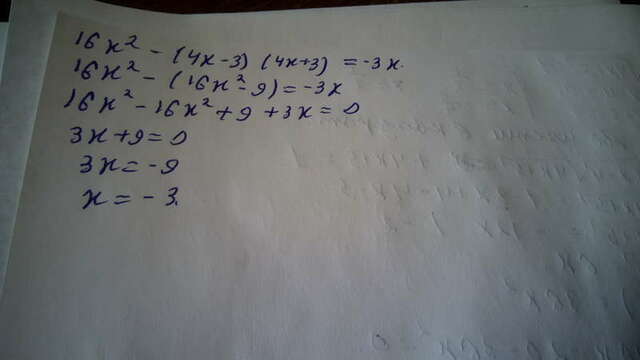 16x² - (4x-3) (4x+3) = -3x.
16x² - (16x² - 9) = -3x
16x² - 16x² + 9 + 3x = 0
3x + 9 = 0
3x = -9
x = -3.